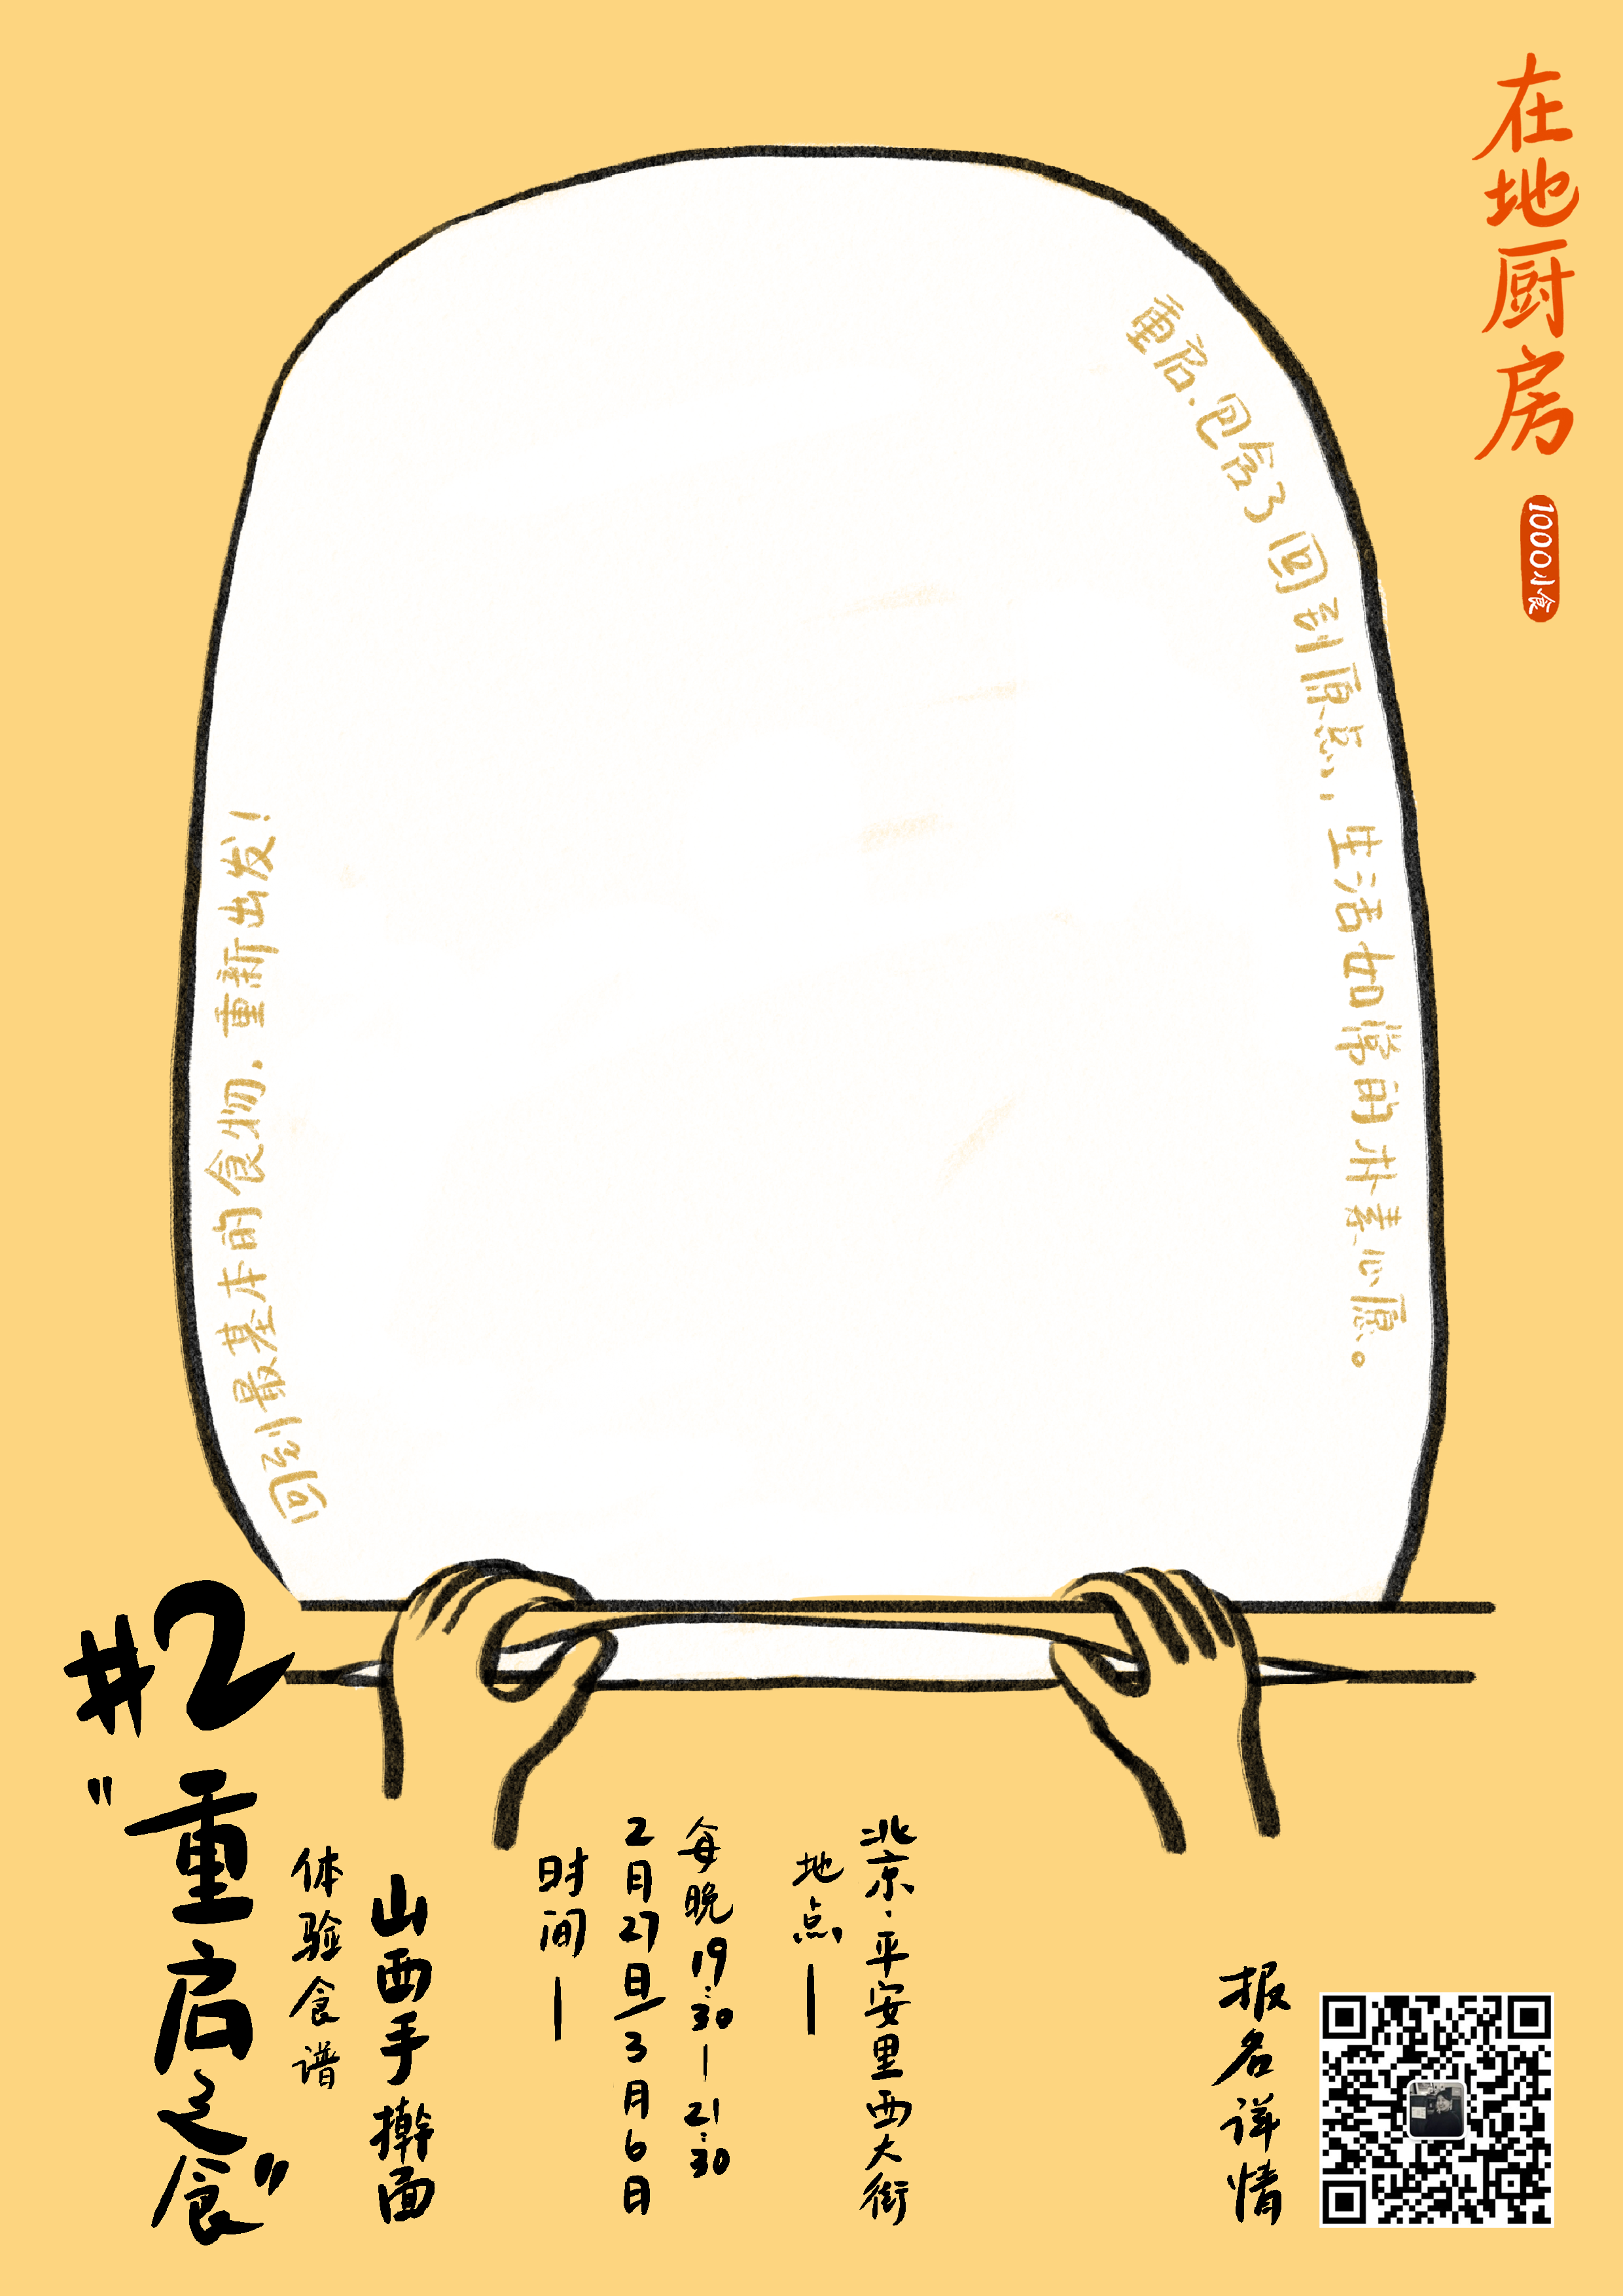 在地厨房
1000小食
重启、包含了回到原点，生活如常的朴素心愿。
回到最基本的食物，重新出发！
#2
"重启之食"
体验食谱
山西手擀面
时间—
2月27日—3月6日
每晚19:30—21:30
地点—
北京·平安里西大街
报名详情